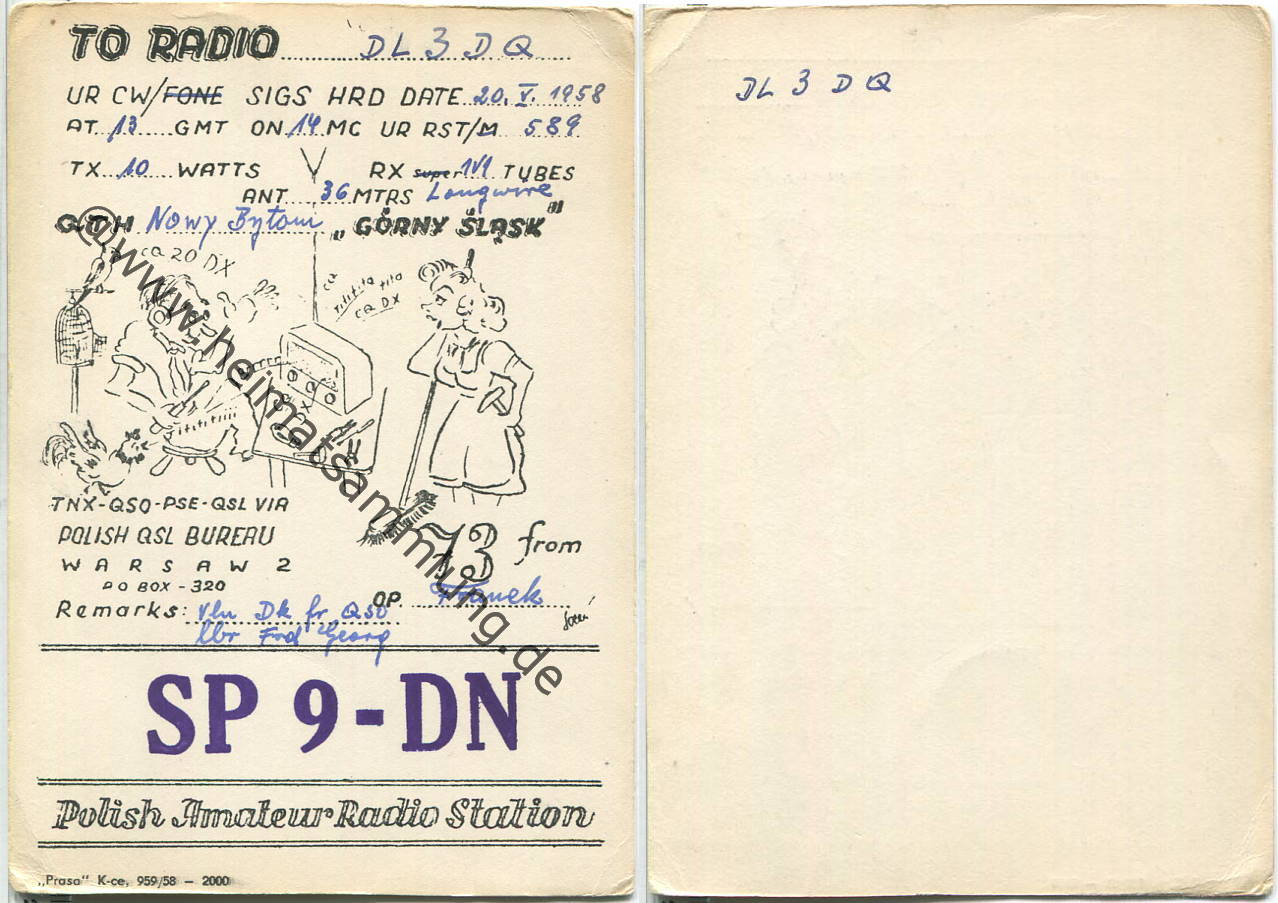 TO RADIO DL 3 DQ
UR CW/FONE SIGS HRD DATE 20. V. 1958
AT 13 GMT ON 14 MC UR RST/M 589
TX 10 WATTS RX super 1V1 TUBES
ANT 36 MTRS Longwire
QTH Nowy Bytom „GÓRNY ŚLĄSK"
cq 20 DX
cq
titititita tita
cq DX
TNX-QSO-PSE-QSL VIA
POLISH QSL BUREAU
WARSAW 2
PO BOX - 320
73 from
OP. Franek
Remarks: Vln Dk fr QSO
lbr Frd Georg
SP 9-DN
Polish Amateur Radio Station
„Prasa" K-ce, 959/58 — 2000
@www.heimatsammlung.de
DL 3 DQ